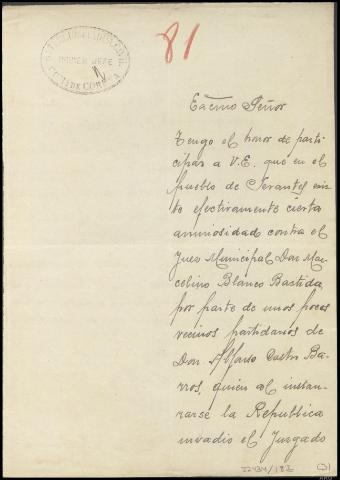 81
PRIMER JEFE
Excmo Señor
Tengo el honor de parti
cipar a V.E. que en el
pueblo de Serantes exis
te efectivamente cierta
animosidad contra el
Juez Municipal Don Mar
celino Blanco Bastida,
por parte de unos pocos
vecinos partidarios de
Don Alfonso Castro Ba-
rros, quien al instau-
rarse la Republica
invadio el Juzgado